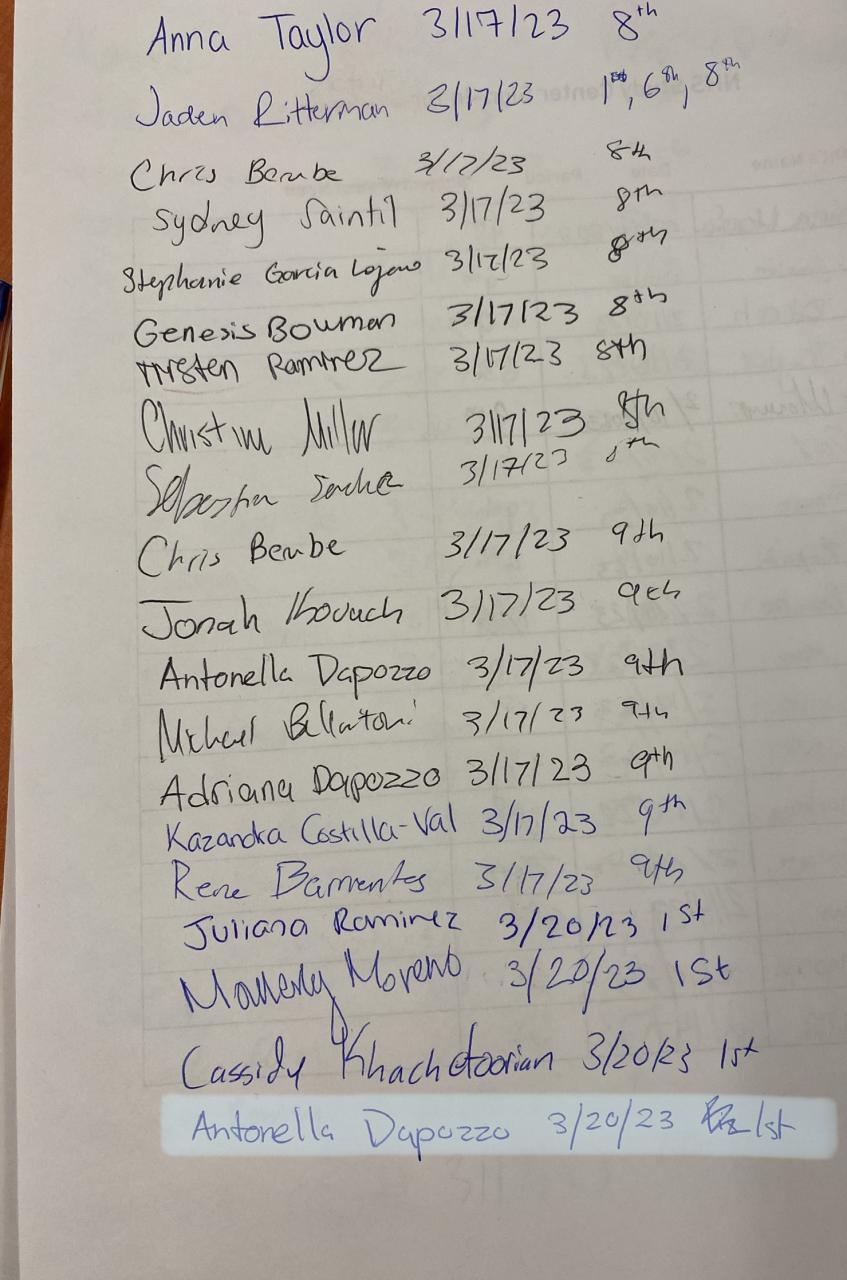 Anna Taylor 3/17/23 8th
Jaden Ritterman 3/17/23 1st, 6th, 8th
Chris Berube 3/17/23 8th
Sydney Saintil 3/17/23 8th
Stephanie Garcia Lojano 3/17/23 8th
Genesis Bowman 3/17/23 8th
Trysten Ramirez 3/17/23 8th
Christine Miller 3/17/23 8th
Sebastian 3/17/23 8th
Chris Berube 3/17/23 9th
Jonah 3/17/23 9th
Antonella Dapozzo 3/17/23 9th
Michael Bellantoni 3/17/23 9th
Adriana Dapozzo 3/17/23 9th
Kazandra Costilla-Val 3/17/23 9th
Rene Barrientes 3/17/23 9th
Juliana Ramirez 3/20/23 1st
Moreno 3/20/23 1st
Cassidy Khachetoorian 3/20/23 1st
Antonella Dapozzo 3/20/23 1st